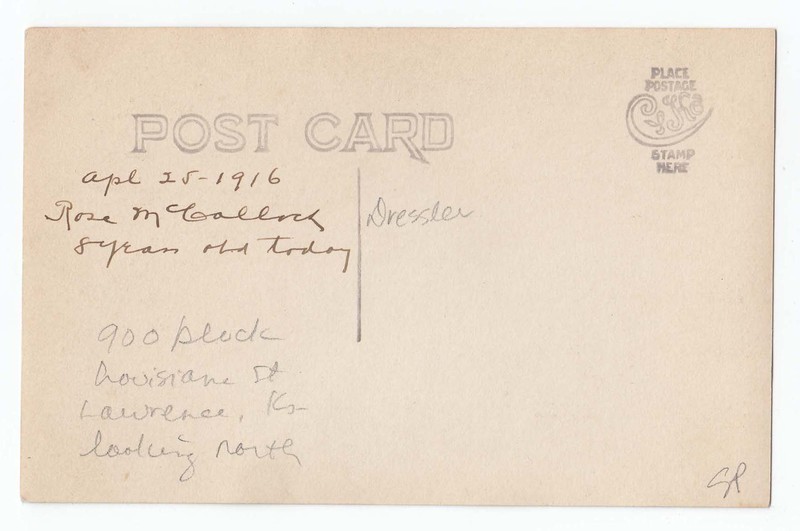 POST CARD
PLACE
POSTAGE
STAMP
HERE
Apl 25-1916
Rose McCallock
8 years old today
Dressler
900 block
Louisiana St
Lawrence, Ks
looking north